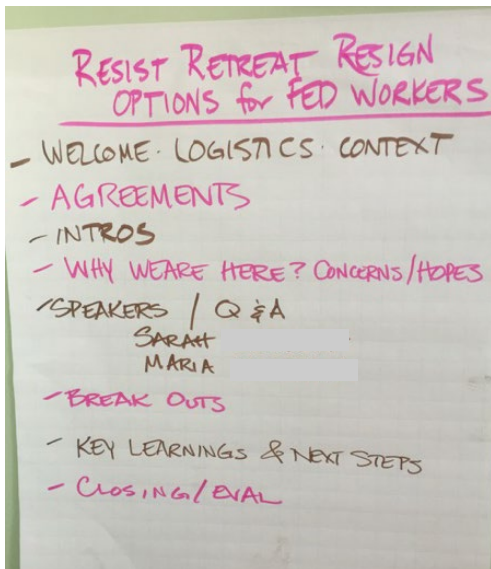 RESIST RETREAT RESIGN
OPTIONS for FED WORKERS
- WELCOME · LOGISTICS · CONTEXT
- AGREEMENTS
- INTROS
- WHY WE ARE HERE? CONCERNS/HOPES
- SPEAKERS / Q & A
SARAH
MARIA
- BREAK OUTS
- KEY LEARNINGS & NEXT STEPS
- CLOSING/EVAL